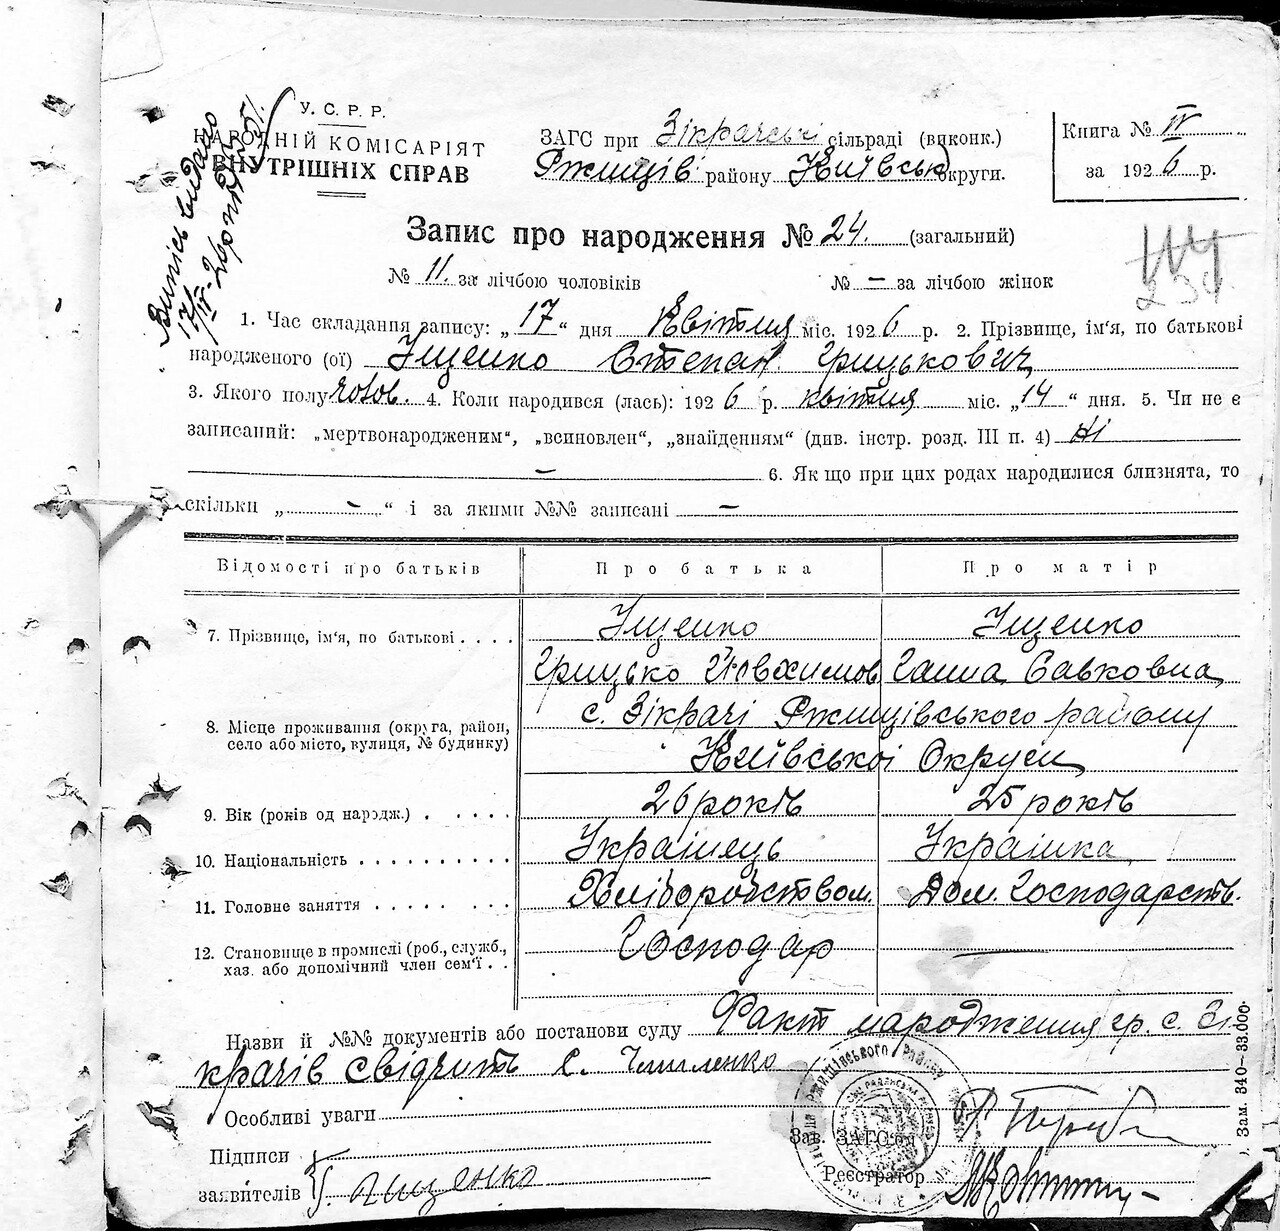 У. С. Р. Р.
НАРОДНІЙ КОМІСАРІЯТ
ВНУТРІШНІХ СПРАВ
Випись видано
ЗАГС при Зікрачські сільраді (виконк.)
Ржищів району Київськ округи.
Книга № IV
за 1926 р.
Запис про народження № 24. (загальний)
№ 11. за лічбою чоловіків № – за лічбою жінок
234
1. Час складання запису: „17“ дня Квітня міс. 1926 р. 2. Прізвище, ім'я, по батькові
народженого (ої) Іщенко Степан Грицькович
3. Якого полу чолов. 4. Коли народився (лась): 1926 р. квітня міс. „14“ дня. 5. Чи не є
записаний: „мертвонародженим“, „всиновлен“, „знайденням“ (див. інстр. розд. III п. 4) ні
– 6. Як що при цих родах народилися близнята, то
скільки „ – “ і за якими №№ записані –
Відомості про батьків Про батька Про матір
7. Прізвище, ім'я, по батькові . . . . Іщенко Іщенко
Грицько Йовхимов Ганна Савковна
8. Місце проживання (округа, район, село або місто, вулиця, № будинку) с. Зікрачі Ржищівського району
Київської Округи
9. Вік (років од народж.) . . . . . 26 років 25 років
10. Національність . . . . . . . . . . Українець Українка
11. Головне заняття . . . . . . . . Хліборобством. Дом. Господарств.
12. Становище в промислі (роб., служб., Господар —
хаз. або допомічний член сем'ї . .
Назви й №№ документів або постанови суду Факт народження гр. с. Зі
крачів свідчить С.
Особливі уваги
Підписи
заявителів Іщенко
Зав. ЗАГСом
Реєстратор
Зам. 340—33.000.